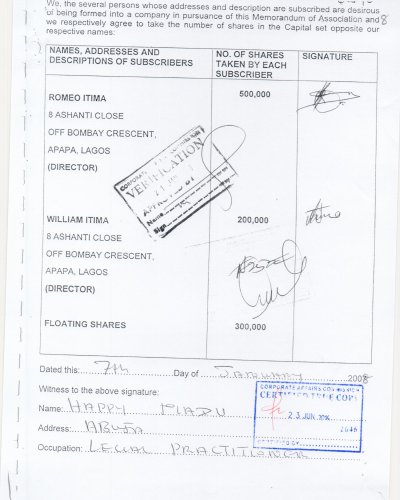 We, the several persons whose addresses and description are subscribed are desirous
of being formed into a company in pursuance of this Memorandum of Association and
we respectively agree to take the number of shares in the Capital set opposite our
respective names:
8
NAMES, ADDRESSES AND DESCRIPTIONS OF SUBSCRIBERS
NO. OF SHARES TAKEN BY EACH SUBSCRIBER
SIGNATURE
ROMEO ITIMA
500,000
8 ASHANTI CLOSE
OFF BOMBAY CRESCENT,
APAPA, LAGOS
(DIRECTOR)
CORPORATE
VERIFICATION
Name
Sign
WILLIAM ITIMA
200,000
8 ASHANTI CLOSE
OFF BOMBAY CRESCENT,
APAPA, LAGOS
(DIRECTOR)
FLOATING SHARES
300,000
Dated this: 7th Day of JANUARY 2008
Witness to the above signature:
Name: HAPPY
Address: ABUJA
Occupation: LEGAL PRACTITIONER
CORPORATE AFFAIRS COMMISSION
CERTIFIED TRUE COPY
23 JUN